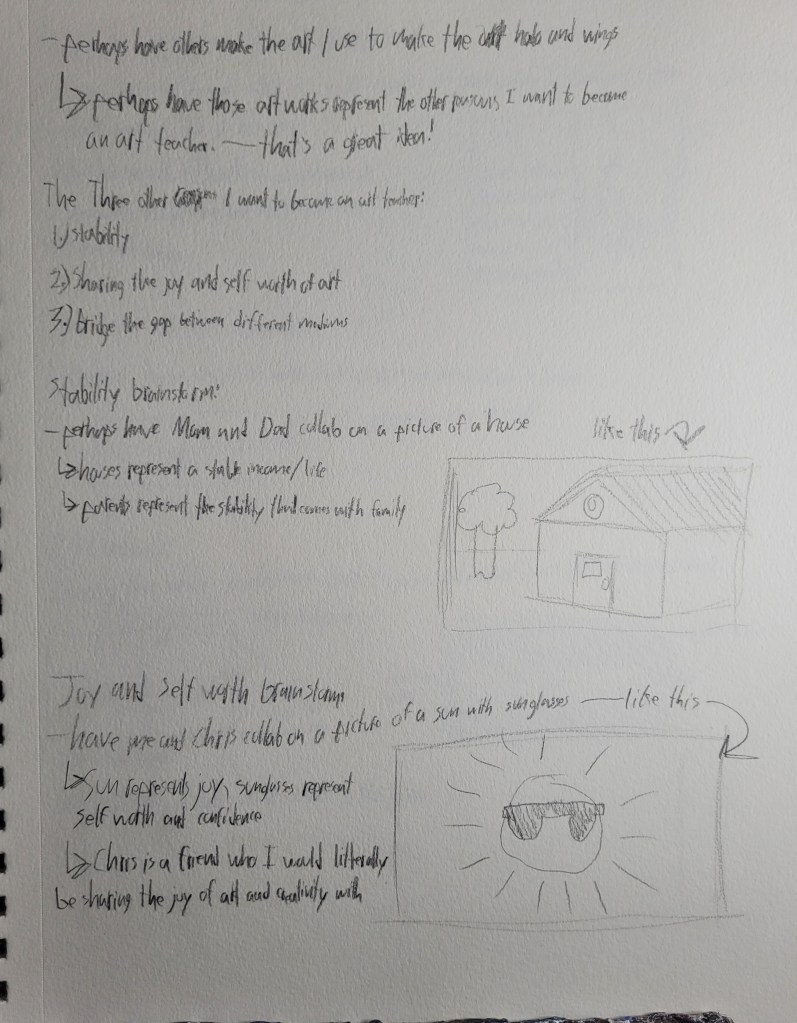 - perhaps have others make the art I use to make the halo and wings
↳ perhaps have those artworks represent the other reasons I want to become
an art teacher. — that's a great idea!
The Three other I want to become an art teacher:
1.) stability
2.) Sharing the joy and self worth of art
3.) bridge the gap between different mediums
Stability brainstorm:
- perhaps have Mom and Dad collab on a picture of a house
like this
↳ houses represent a stable income/life
↳ parents represent the stability that comes with family
Joy and self worth brainstorm
- have me and Chris collab on a picture of a sun with sunglasses — like this
↳ Sun represents joy, sunglasses represent
self worth and confidence
↳ Chris is a friend who I would litterally
be sharing the joy of art and creativity with